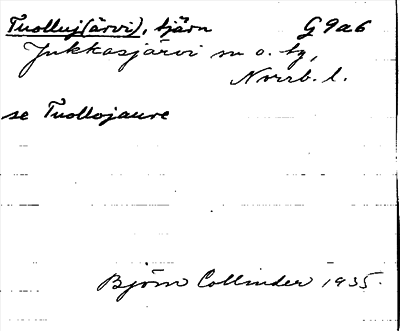 Tuolluj(ärvi), tjärn G9a6
Jukkasjärvi sn o. tg,
Norrb. l.
se Tuollojaure
Björn Collinder 1935.